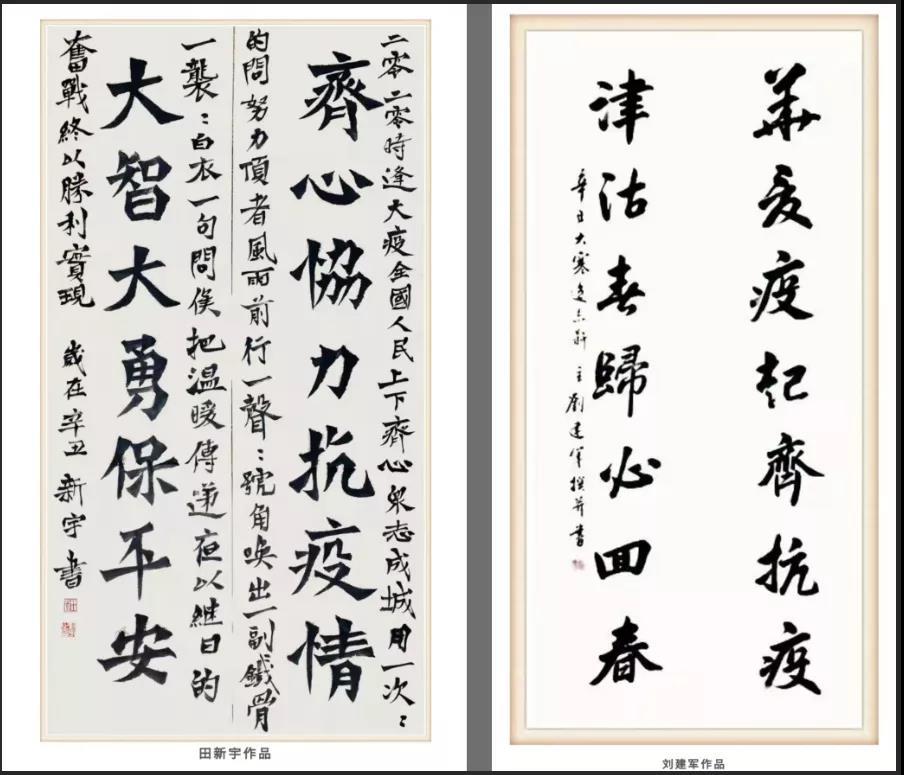 二零二零時逢大疫全國人民上下齊心衆志成城用一次：
齊心協力抗疫情
的問努力頂者風雨前行一聲：號角喚出一副鐵骨
一襲：白衣一句問候把溫暖傳遞夜以繼日的
大智大勇保平安
奮戰終以勝利實現 歲在辛丑 新宇書
田新宇作品
華夏疫起齊抗疫
津沽春歸必回春
辛丑大寒 主劉建軍撰并書
刘建军作品